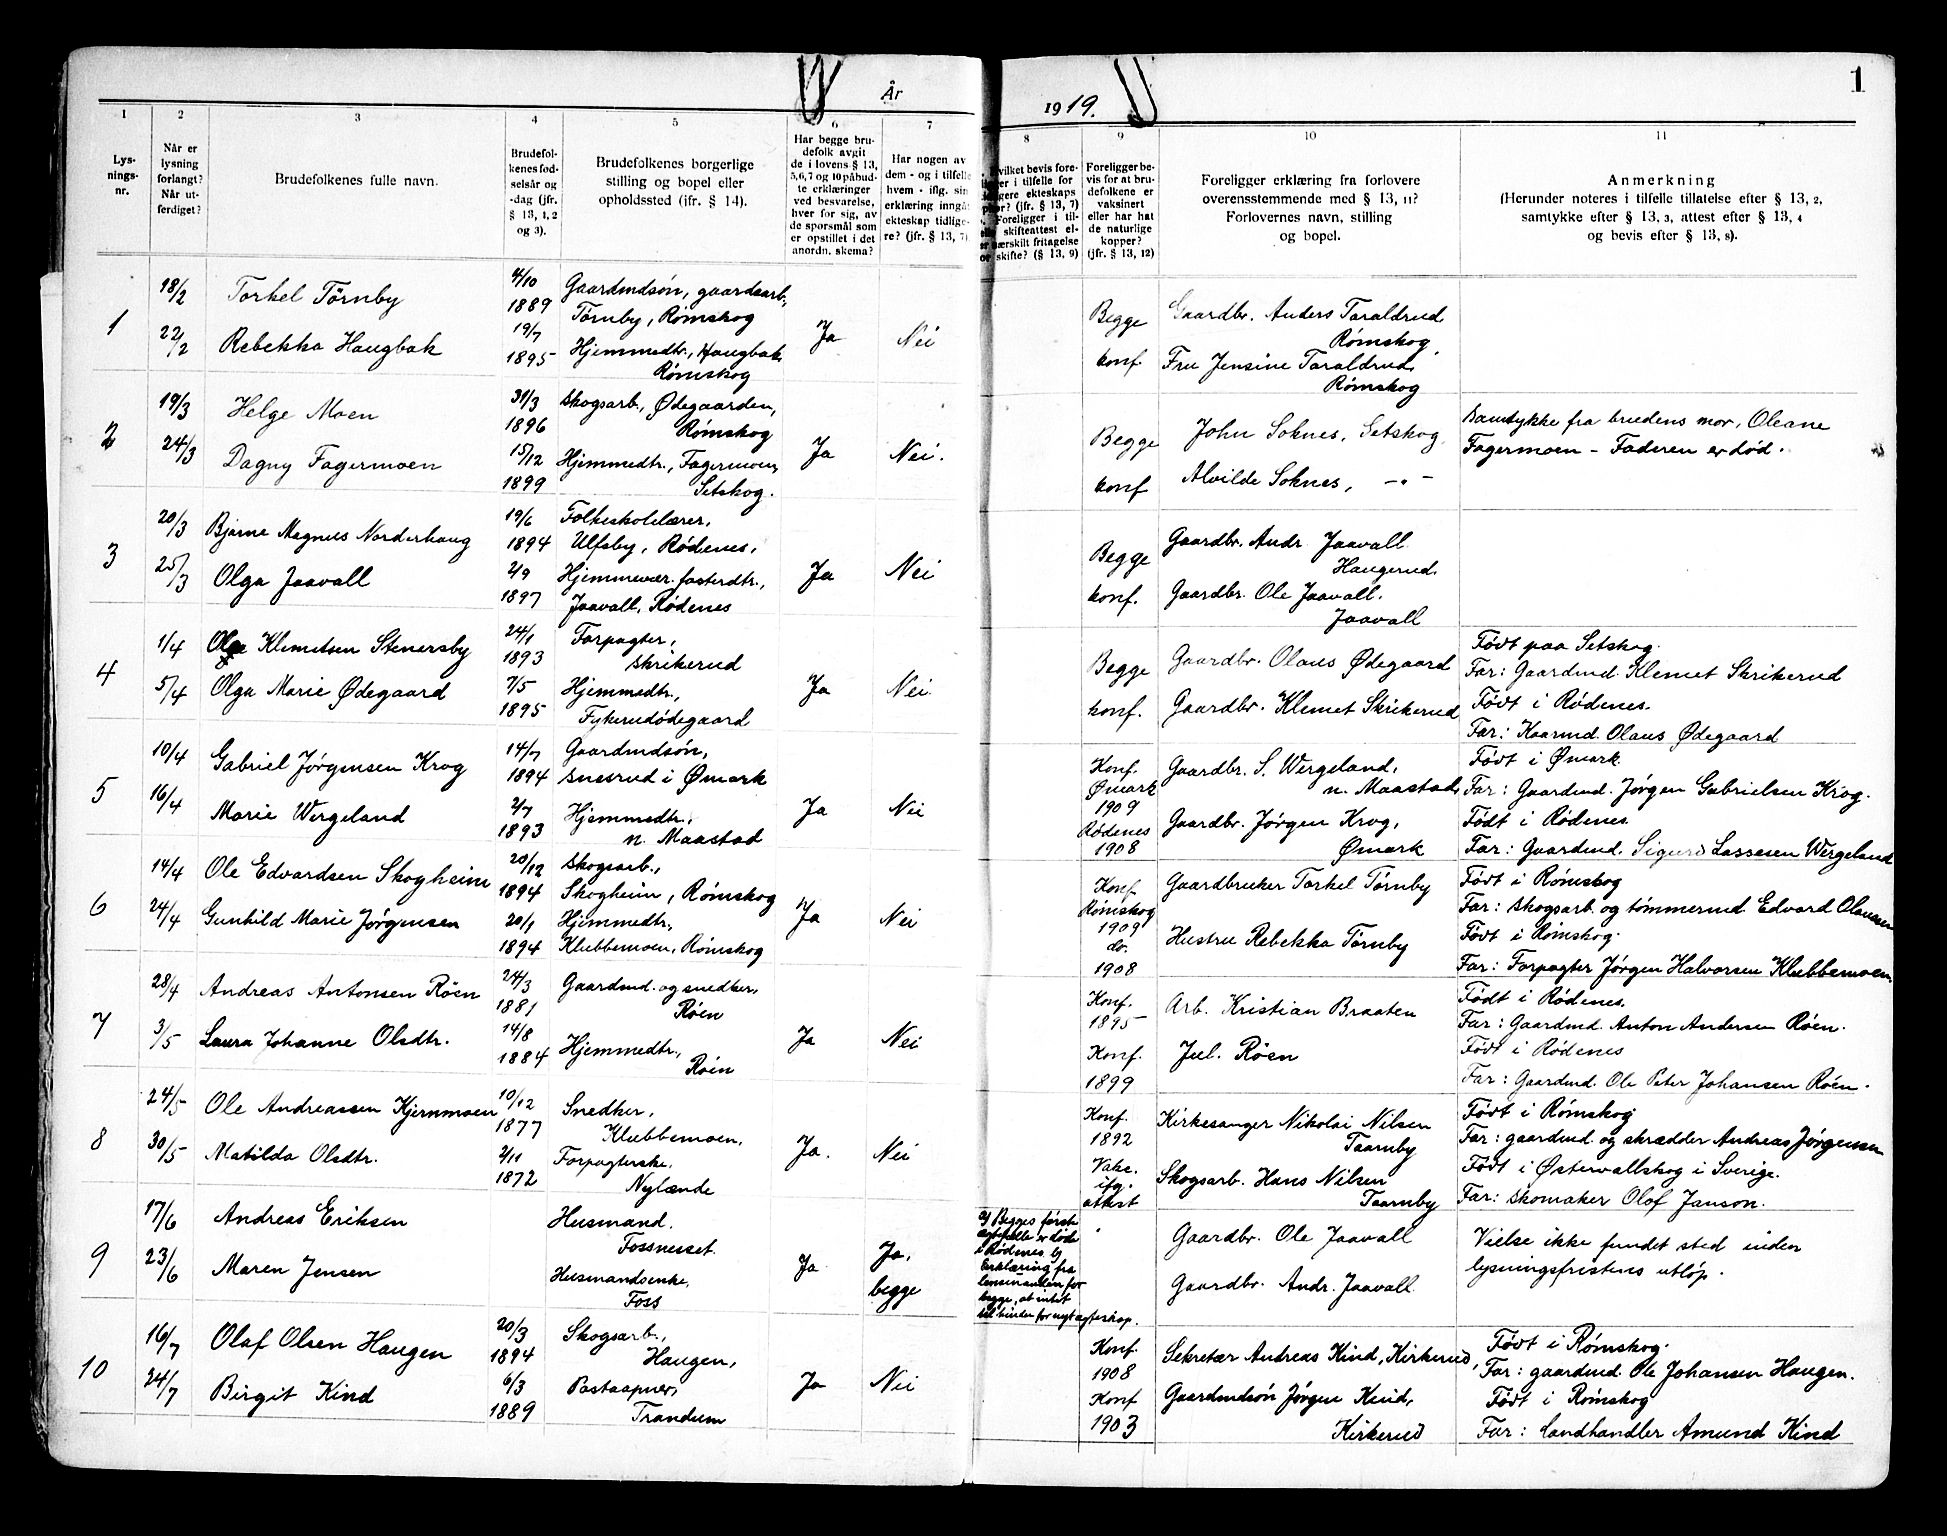 1
År
1919.
1
2
3
4
5
6
7
8
9
10
11
Lys-
nings-
nr.
Når er
lysning
forlangt?
Når ut-
ferdiget?
Brudefolkenes fulle navn.
Brudefol-
kenes fød-
selsår og
-dag (jfr.
§ 13, 1, 2
og 3).
Brudefolkenes borgerlige
stilling og bopel eller
opholdssted (jfr. § 14).
Har begge bru-
defolk avgit
de i lovens § 13,
5, 6, 7 og 10 påbud-
te erklæringer
ved besvarelse,
hver for sig, av
de spørsmål som
er opstillet i det
anordn. skema?
Har nogen av
dem - og i tilfelle
hvem - iflg. sin
erklæring inngåt
ekteskap tidlige-
re? (jfr. § 13, 7)
vilket bevis fore-
er i tilfelle for
gere ekteskaps
? (jfr. § 13, 7)
Foreligger i til-
skifteattest el-
ærskilt fritagelse
skifte? (§ 13, 9)
Foreligger be-
vis for at bru-
defolkene er
vaksinert
eller har hat
de naturlige
kopper?
(jfr. § 13, 12)
Foreligger erklæring fra forlovere
overensstemmende med § 13, 11?
Forlovernes navn, stilling
og bopel.
Anmerkning
(Herunder noteres i tilfelle tillatelse efter § 13, 2,
samtykke efter § 13, 3, attest efter § 13, 4
og bevis efter § 13, 8).
1
18/2
22/2
Torkel Tørnby
Rebekka Haugbak
4/10
1889
19/7
1895
Gaardmdsøn, gaardsarb.,
Tørnby, Rømskog
Hjemmedtr., Haugbak
Rømskog
Ja
Nei
Begge
konf.
Gaardbr. Anders Taraldrud
Rømskog
Fru Jensine Taraldrud,
Rømskog
2
19/3
24/3
Helge Moen
Dagny Fagermoen
31/3
1896
15/12
1899
Skogsarb., Ødegaarden,
Rømskog
Hjemmedtr., Fagermoen,
Setskog.
Ja
Nei.
Begge
konf
John Soknes, Setskog
Alvilde Soknes, -"-
Samtykke fra brudens mor, Oleane
Fagermoen - Faderen er død.
3
20/3
25/3
Bjarne Magnus Norderhaug
Olga Jaavall
19/6
1894
2/9
1897
Folkeskolelærer,
Ulfsby, Rødenes,
Hjemmevær. fosterdtr.,
Jaavall, Rødenes
Ja
Nei
Begge
konf.
Gaardbr. Andr. Jaavall
Haugerud.
Gaardbr. Ole Jaavall.
Jaavall
4
1/4
5/4
Ole Klemetsen Stenersby
Olga Marie Ødegaard
24/1
1893
7/5
1895
Forpagter,
Skrikerud
Hjemmedtr.,
Fykerudødegaard
Ja
Nei
Begge
konf.
Gaardbr. Olaus Ødegaard
Gaardbr. Klemet Skrikerud
Født paa Setskog.
Far: Gaardmd. Klemet Skrikerud
Født i Rødenes.
Far: Kaarmd. Olaus Ødegaard
5
10/4
16/4
Gabriel Jørgensen Krog
Marie Wergeland
14/7
1894
2/7
1893
Gaardmdsøn,
Susrud i Ømark
Hjemmedtr.,
n. Maastad
Ja
Nei
Konf.
Ømark
1909
Rødenes
1908
Gaardbr. S. Wergeland,
n. Maastad,
Gaardbr. Jørgen Krog,
Ømark
Født i Ømark
Far: Gaardmd. Jørgen Gabrielsen Krog.
Født i Rødenes.
Far: Gaardmd. Sigurd Lassesen Wergeland
6
14/4
24/4
Ole Edvardsen Skogheim
Gunhild Marie Jørgensen
20/12
1894
20/1
1894
Skogsarb.,
Skogheim, Rømskog
Hjemmedtr.,
Klubbemoen, Rømskog
Ja
Nei
Konf.
Rømskog
1909
do.
1908
Gaardbruker Torkel Tørnby
Hustru Rebekka Tørnby
Født i Rømskog
Far: Skogsarb. og tømmermd. Edvard Olaussen
Født i Rømskog.
Far: Forpagter Jørgen Halvorsen Klubbemoen
7
28/4
3/5
Andreas Antonsen Røen
Laura Johanne Olsdtr.
24/3
1881
14/8
1884
Gaardmd. og snedker,
Røen
Hjemmedtr.,
Røen
Ja
Nei
Konf.
1895
Konf.
1899
Arb. Kristian Braaten
Jul. Røen
Født i Rødenes.
Far: Gaardmd. Anton Andersen Røen.
Født i Rødenes
Far: Gaardmd. Ole Peter Johansen Røen.
8
24/5
30/5
Ole Andreassen Kjernmoen
Matilda Olsdtr.
10/12
1877
2/11
1872
Snedker,
Klubbemoen,
Forpagterske,
Nylænde
Ja.
Nei
Konf.
1892
Vaks.
ifg.
attest
Kirkesanger Nikolai Nilsen
Taarnby
Skogsarb. Hans Nilsen
Taarnby
Født i Rømskog
Far: gaardmd. og skrædder Andreas Jørgensen
Født i Østervallskog i Sverige.
Far: Skomaker Olof Janson.
9
17/6
23/6
Andreas Eriksen
Maren Jensen
Husmand.
Fossnesset.
Husmandsenke,
Foss
Ja
Ja,
begge
a) Begges første
egtefelle er døde
i Rødenes. b)
Erklæring fra
lensmanden for
begge, at intet
til hinder for nyt egteskap.
Gaardbr. Ole Jaavall
Gaardbr. Andr. Jaavall
Vielse ikke fundet sted inden
lysningsfristens utløp.
10
16/7
24/7
Olaf Olsen Haugen
Birgit Kind
20/3
1894
6/3
1889
Skogsarb.,
Haugen,
Postaapner,
Trandum
Ja
Nei
Konf.
1908
Konf
1903
Sekretær Andreas Kind, Kirkerud,
Gaardmdsøn Jørgen Kind,
Kirkerud
Født i Rømskog.
Far: gaardmd. Ole Johansen Haugen.
Født i Rømskog
Far: Landhandler Amund Kind